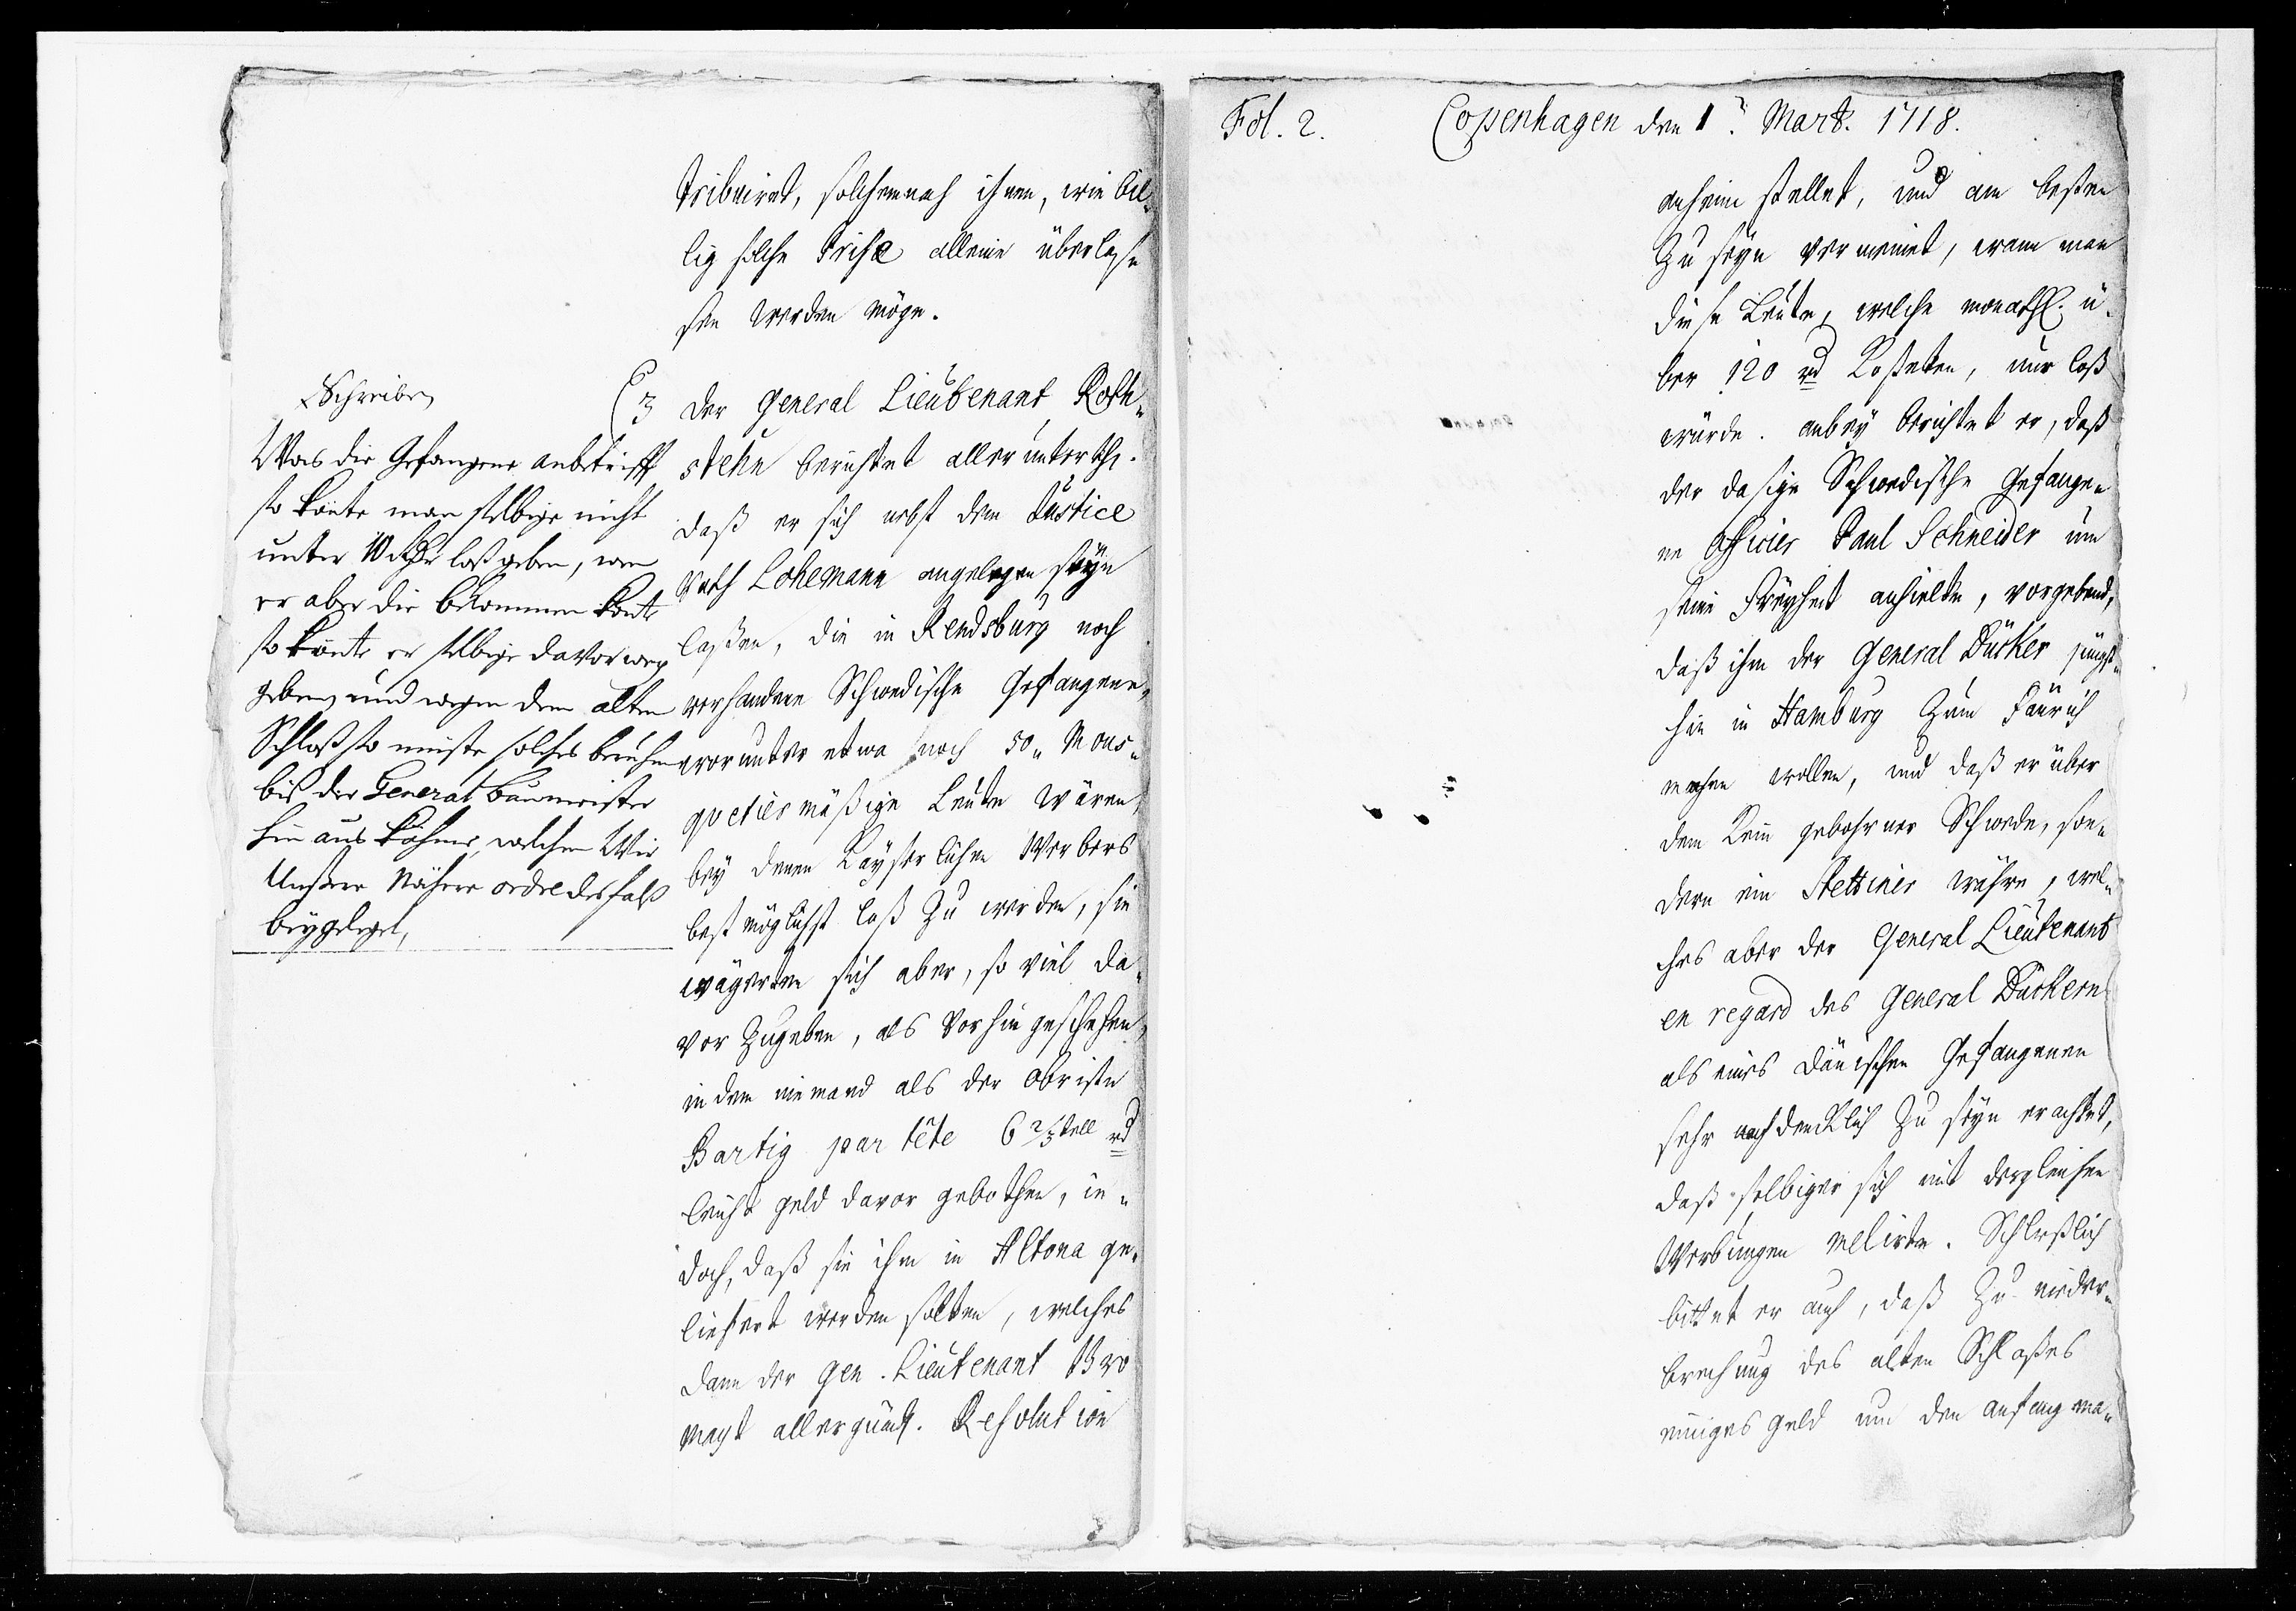 tribuiret, solchemnach ihnen, wie bil¬
lig solche Prise alleine überlaße
sen werden möge.
Schreiben
Was die Gefangene anbetrifft
so könte man selbige nicht
unter 10 Rdlr loßgeben, wen
er aber die bekommen konte
so könte er selbige davor weg
geben, und wegen dem alten
Schloß so müste solches beruhen
bis der General Baumeister
hin aus köhme, welchem Wir
Unsere nähere ordre desfalß
beygeleget,
3 Der General Lieutenant Roth¬
stehn berichtet allerunterthg.
daß er sich nebst dem Justice
Rath Lohemann angelegen seyn
laßen, die in Rendsburg noch
vorhandene Schwedische Gefangene,
worunter etwa noch 50 „ Mous¬
quetiermäßige Leute wären,
bey denen Kayserlichen Werbers
best möglichst loß zu werden, sie
wägerten sich aber, so viel da¬
vor zugeben, als vorhin geschehen,
in dem niemand als der Obriste
Bartig par tête 6 2/3tell rd
leicht geld davor gebothen, ie¬
doch, daß sie ihm in Altona ge¬
liefert werden solten, welches
dann der Gen. Lieutenant Ew
Mayt allergündt. Resolution
Fol. 2. Copenhagen den 1: Mart. 1718.
anheim stellet, und am besten
zu seyn vermeinet, wann man
diese Leute, welche monathl. ü¬
ber 120 rd Kosteten, nur loß
würde. anbey berichtet er, daß
der dasige Schwedische Gefange¬
ne Officier Paul Schneider um
seine Freyheit anhielte, vorgebend,
daß ihm der General Dücker jüngst¬
hin in Hamburg zum Fänrich
machen wollen, und daß er über
dem kein gebohrner Schwede, son¬
dern ein Stettiner währe, wel¬
ches aber der General Lieutenant
en regard des General Dückern
als eines Dänischen Gefangenen
sehr nachdencklich zu seyn erachtet,
daß selbiger sich mit dergleichen
Werbungen melirte. Schleßlich
bittet er auch, daß zu nieder¬
brechung des alten Schloßes
einiges geld um den anfang ma¬